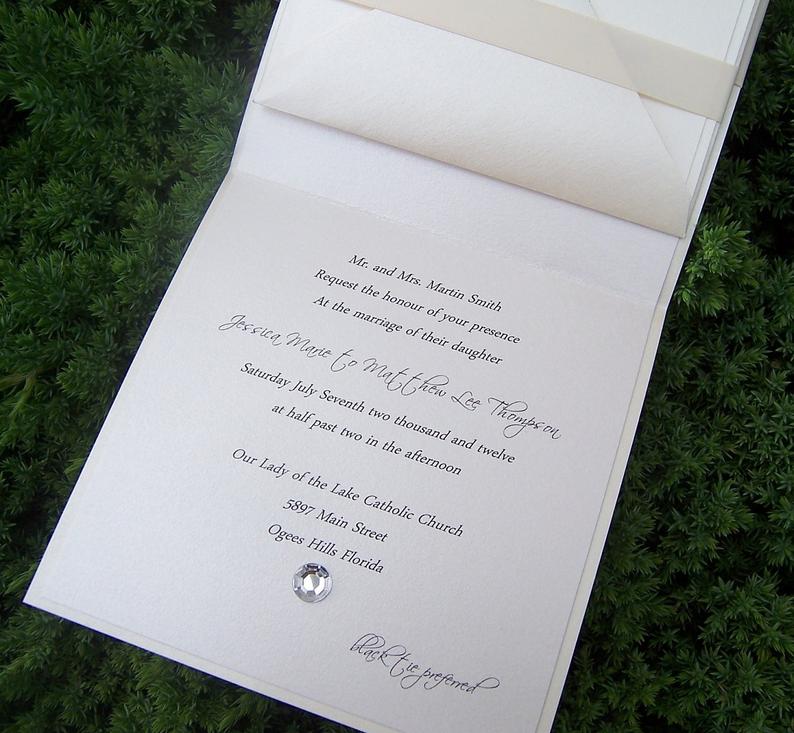 Mr. and Mrs. Martin Smith
Request the honour of your presence
At the marriage of their daughter
Jessica Marie to Matthew Lee Thompson
Saturday July Seventh two thousand and twelve
at half past two in the afternoon
Our Lady of the Lake Catholic Church
5897 Main Street
Ogees Hills Florida
black tie preferred